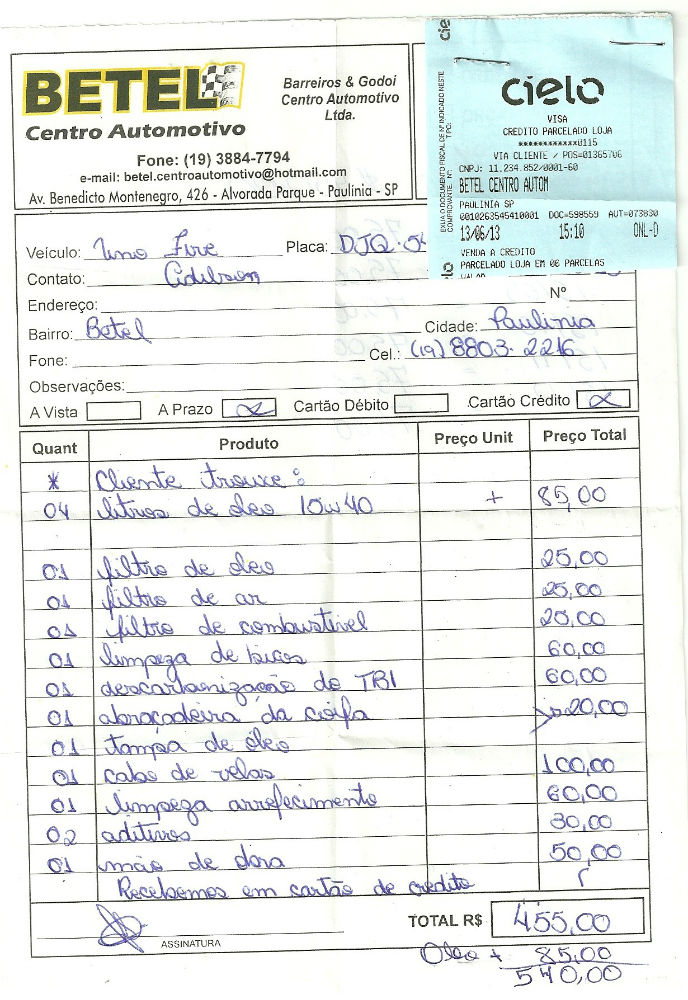 BETEL
Centro Automotivo
Barreiros & Godoi
Centro Automotivo
Ltda.
Fone: (19) 3884-7794
e-mail: betel.centroautomotivo@hotmail.com
Av. Benedicto Montenegro, 426 - Alvorada Parque - Paulinia - SP
EXIJA O DOCUMENTO FISCAL DE Nº INDICADO NESTE
COMPROVANTE. Nº: TIPO:
cielo
VISA
CREDITO PARCELADO LOJA
************0115
VIA CLIENTE / POS=01365706
CNPJ: 11.234.852/0001-60
BETEL CENTRO AUTOM
PAULINIA SP
0010263545410001 DOC=598559 AUT=073830
13/06/13 15:10 ONL-D
VENDA A CREDITO
PARCELADO LOJA EM 06 PARCELAS
Veículo: Uno Fire Placa: DJQ-54
Contato:
Endereço: Nº
Bairro: Betel Cidade: Paulinia
Fone: Cel.: (19) 8803-2216
Observações:
A Vista A Prazo x Cartão Débito Cartão Crédito x
Quant Produto Preço Unit Preço Total
* Cliente trouxe:
04 litros de óleo 10w40 + 85,00
01 filtro de óleo 25,00
01 filtro de ar 25,00
01 filtro de combustível 25,00
01 limpeza de bicos 60,00
01 descarbonização do TBI 60,00
01 abraçadeira da coifa 20,00
01 tampa de óleo
01 cabo de velas 100,00
01 limpeza arrefecimento 60,00
02 aditivos 30,00
01 mão de obra 50,00
Recebemos em cartão de credito
TOTAL R$ 455,00
ASSINATURA
Oleo + 85,00
540,00